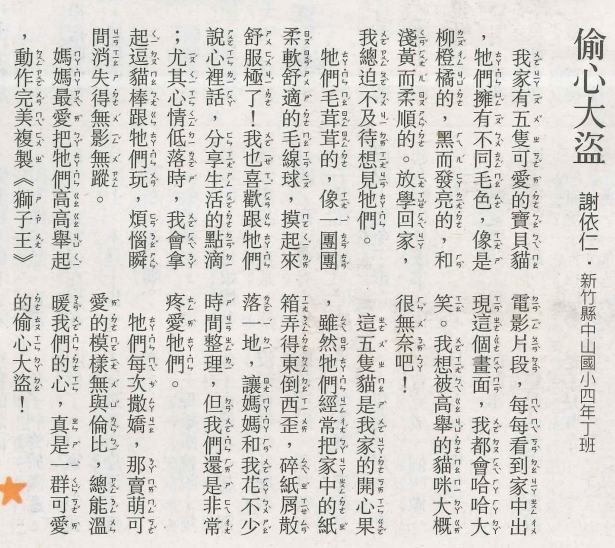 偷心大盜
謝依仁・新竹縣中山國小四年丁班
我家有五隻可愛的寶貝貓
，牠們擁有不同毛色，像是
柳橙橘的，黑而發亮的，和
淺黃而柔順的。放學回家，
我總迫不及待想見牠們。
牠們毛茸茸的，像一團團
柔軟舒適的毛線球，摸起來
舒服極了！我也喜歡跟牠們
說心裡話，分享生活的點滴
；尤其心情低落時，我會拿
起逗貓棒跟牠們玩，煩惱瞬
間消失得無影無蹤。
媽媽最愛把牠們高高舉起
，動作完美複製《獅子王》
電影片段，每每看到家中出
現這個畫面，我都會哈哈大
笑。我想被高舉的貓咪大概
很無奈吧！
這五隻貓是我家的開心果
，雖然牠們經常把家中的紙
箱弄得東倒西歪，碎紙屑散
落一地，讓媽媽和我花不少
時間整理，但我們還是非常
疼愛牠們。
牠們每次撒嬌，那賣萌可
愛的模樣無與倫比，總能溫
暖我們的心，真是一群可愛
的偷心大盜！